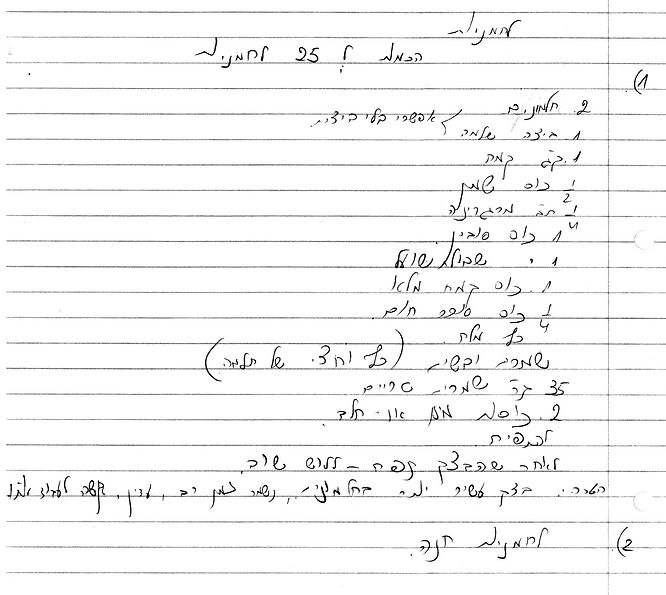 לחמניות
הכמות ל 25 לחמניות
(1
2. חלמונים > אפשרי בלי ביצים.
1. ביצה שלמה
1. קג קמח
1/2 כוס שמן
1/4 חב מרגרינה
1 כוס סובין
1 " שבולת שועל
1. כוס קמח מלא
1/4 כוס סוכר חום.
כף מלח.
שמרית ובשית (כף וחצי. של תלמה.)
35 גר' שמרים טריים
2. כוסות מים או - חלב.
להתפיח.
לאחר שהבצק תפח - ללוש שוב.
הערה: בצק עשיר יותר בחלמונים, נשמר זמן רב, עדין, קשה לעבוד אתו
(2 לחמניות חנה.